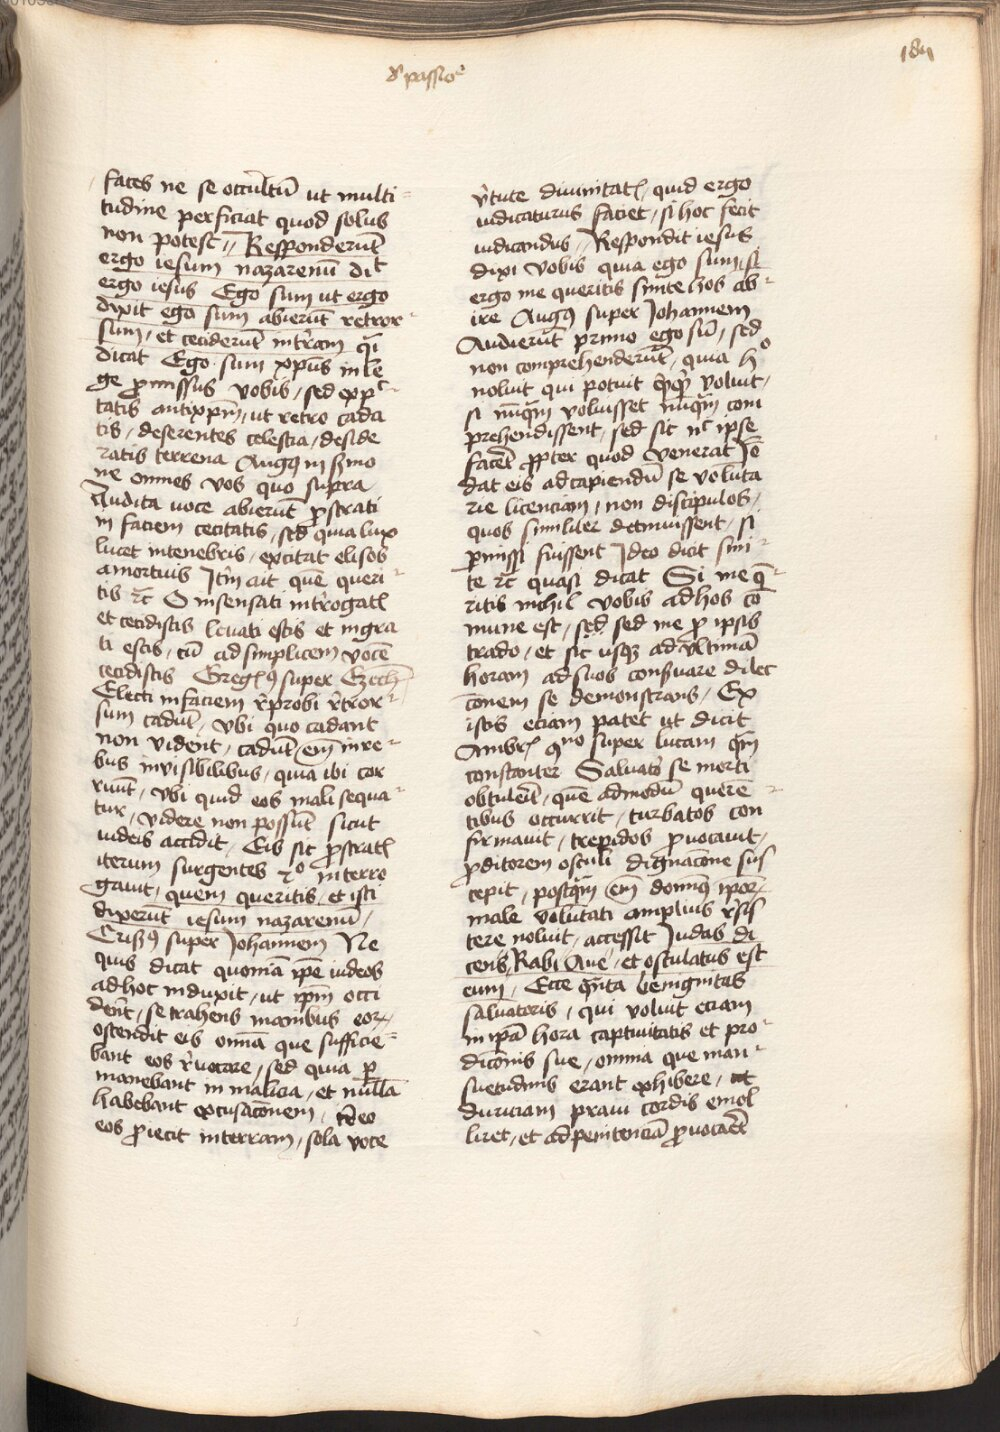 de passioe
184
faces ne se occultū ut multi-
tudine perficiat quod solus
non potest // Responderūt
ergo iesum nazarenū dit
ergo iesus Ego sum ut ergo
dixit ego sum abierūt retror-
sum / et ceciderūt in tram qi
dicat Ego sum xpūs in le
ge pmissus vobis / sed exp
tatis antixpm / ut retro cada
tis / deserentes celestia / deside
ratis terrena Augus in smo
ne omnes vos quo supra
Audita voce abierūt pstrati
in faciem cecitatis / sed quia lux
lucet in tenebris / excitat elisos
a mortuis Itm ait que queri-
tis rc O insensati introgati
et cecidistis levati estis et ingra
ti estis / cū ad simplicem vocē
cecidistis Gregus super Ezech
Electi in faciem rprobi rtror-
sum cadūt / ubi quo cadant
non vident / cadūt em in re-
bus invisibilibus / quia ibi cor
runt / ubi quid eos mali sequa-
tur / videre non possūt sicut
iudeis accidit / Eis sic pstratis
iterum surgentes 2o interro
gavit / quem queritis / et isti
dixerūt iesum nazarenū /
Crisus super Johannem Ne
quis dicat quoniā ipe iudeos
ad hoc induxit / ut ipm occi
deret / se trahens manibus eor
ostendit eis omā que sufficie-
bant eos rvocare / sed quia p
manebant in malicia / et nullā
habebant excusacōnem / Ideo
eos piecit in terram / sola voce
vrtute divinitatis / quid ergo
iudicaturus faciet / si hoc fecit
iudicandus // Respondit iesus
dixi vobis quia ego sum / si
ergo me queritis sinite hos ab-
ire Augus super Johannem
Audierūt primo ego sū / sed
non comprehenderūt / quia ho
noluit qui potuit qcqd voluit /
si nuqm voluisset nuqm com
prehendissent / sed sic nc ipse
facet ppter quod venerat Iē
dat eis ad capiendū se volunta
rie licenciam / non discipulos /
quos similiter detinuissent / si
pmissi fuissent Ideo dicit sini-
te rc quasi dicat Si me q-
ritis nichil vobis ad hos co
mune est / sed sed me p ipsis
trado / et sic usque ad ultimā
horam ad suos conservare dilec
cōnem se demonstrans / Ex
istis eciam patet ut dicit
Ambrs super lucam qm
constanter Salvator se morti
obtulerit / quē admodū querē-
tibus occurrit / turbatos con
firmavit / trepidos pvocavit /
pditorem osculi dignacōne sus
cepit / postqm em domis ipor
male volūtati amplius rsis
tere noluit / accessit Judas di
cens Rabi Ave / et osculatus est
eum / Ecce qnta benignitas
salvatoris / qui voluit eciam
in ipā hora captivitatis et pro-
dicōnis sue / omnia que man-
suetudinis erant exhibere / ut
duriciam pravi cordis emol
liret / et ad penitenciā pvocaret